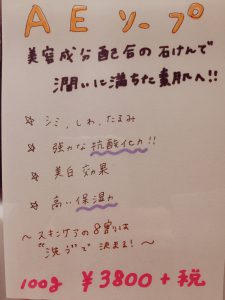 AE ソープ
美容成分配合の石けんで
潤いに満ちた素肌へ!!
☆ シミ、しわ、たるみ
☆ 強力な抗酸化力!!
☆ 美白効果
☆ 高い保湿力
〜スキンケアの8割りは
"洗う"で決まる!〜
100g ¥3800+税